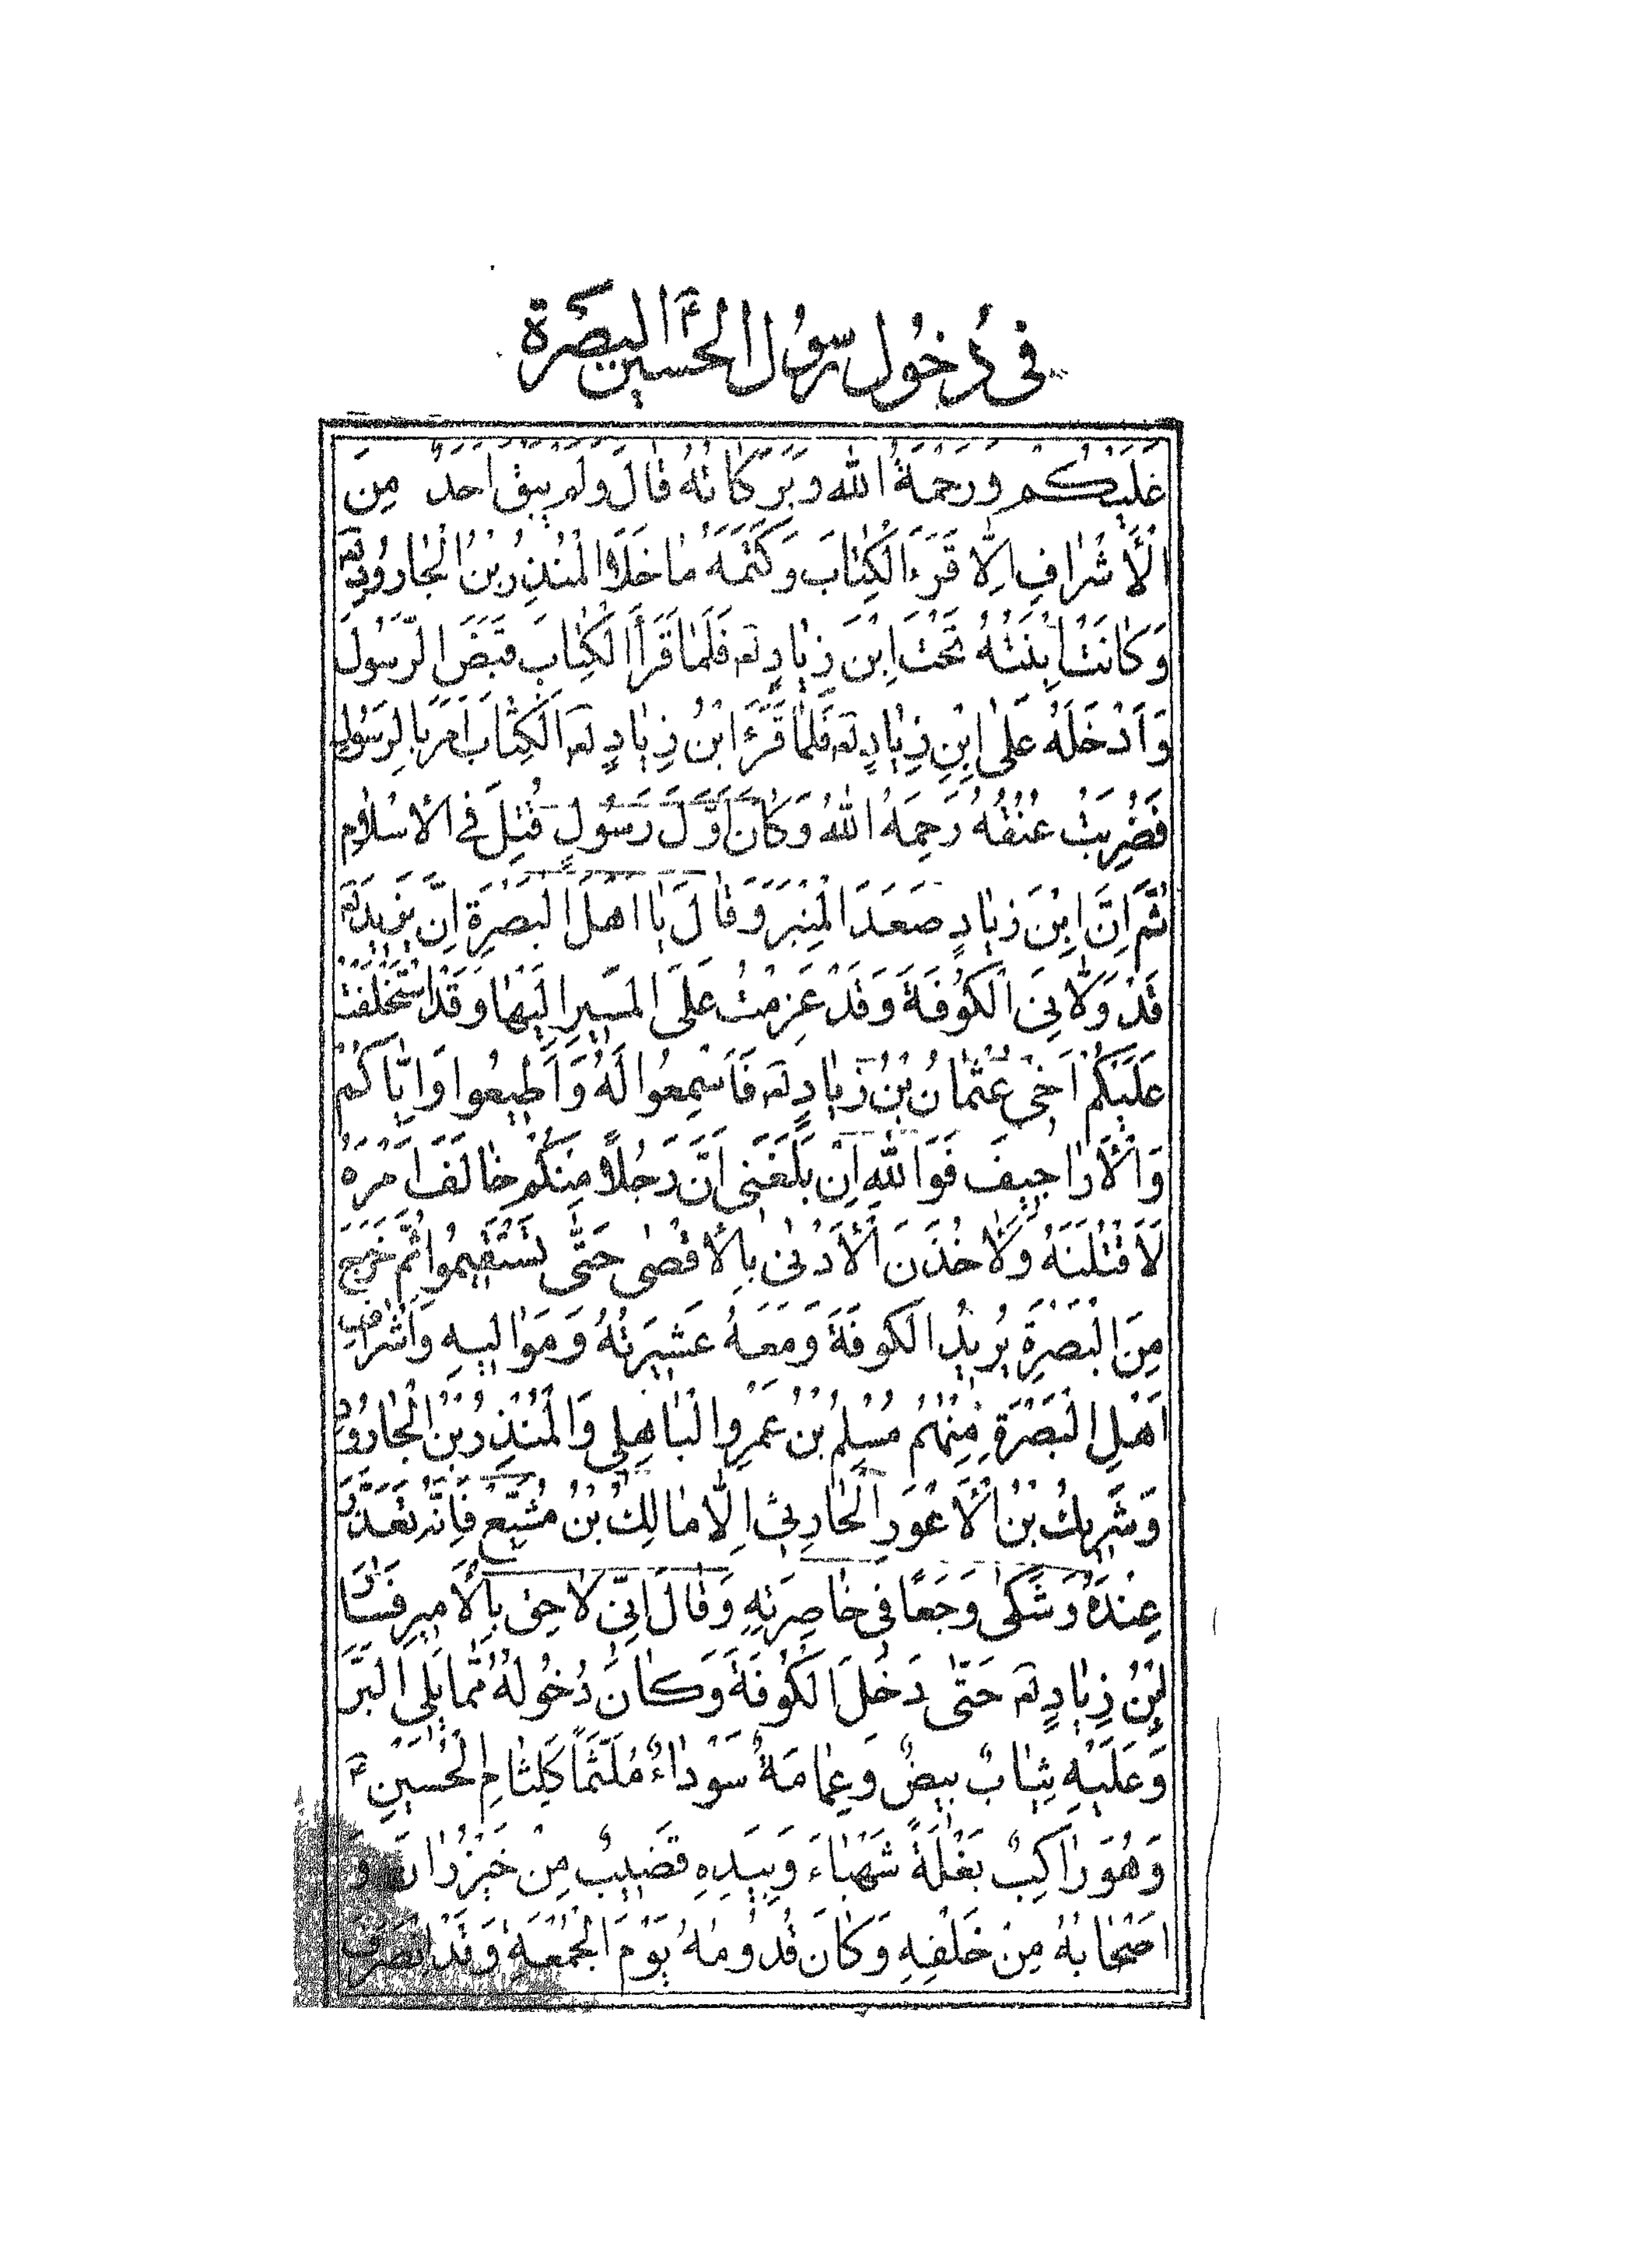 في دُخُول رسُول الحسين ع البصرة
عَلَيْكُمْ وَرَحْمَةُ اللّٰهِ وَبَرَكَاتُهُ قَالَ وَلَمْ يَبْقَ اَحَدٌ مِنَ
الْأَشْرَافِ اِلَّا قَرَءَ الْكِتَابَ وَكَتَمَهُ مَا خَلَا الْمُنْذِرُ بْنُ الْجَارُودِ لعه
وَكَانَتْ اِبْنَتُهُ تَحْتَ اِبْنِ زِيَادٍ لعه فَلَمَّا قَرَأَ الْكِتَابَ قَبَضَ الرَّسُولَ
وَاَدْخَلَهُ عَلَى ابْنِ زِيَادٍ لعه فَلَمَّا قَرَءَ ابْنُ زِيَادٍ لعه الْكِتَابَ اَمَرَ بِالرَسُولِ
فَضُرِبَتْ عُنُقُهُ رَحِمَهُ اللّٰهُ وَكَانَ اَوَّلَ رَسُولٍ قُتِلَ فِي الْاِسْلَامِ
ثُمَّ اِنَّ ابْنَ زِيَادٍ صَعَدَ الْمِنْبَرَ وَقَالَ يَا اَهْلَ الْبَصْرَةِ اِنَّ يَزِيدَ لعه
قَدْ وَلَّانِيَ الْكُوفَةَ وَقَدْ عَزِمْتُ عَلَى الْمَسِيرِ اِلَيْهَا وَقَدْ اسْتَخْلَفْتُ
عَلَيْكُمْ اَخِي عُثْمَانُ بْنُ زِيَادٍ لعه فَاَسْمِعُوا لَهُ وَاَطِيعُوا وَاِيَّاكُمْ
وَالْأَرَاجِيفَ فَوَاللّٰهِ اِنْ بَلَغَنِي اَنَّ رَجُلًا مِنْكُمْ خَالَفَ اَمْرَهُ
لَاَقْتُلَنَّهُ وَلَاٰخُذَنَّ الْأَدْنٰى بِالْأَقْصٰى حَتّٰى تَسْتَقِيمُوا ثُمَّ خَرَجَ
مِنَ الْبَصْرَةِ يُرِيدُ الْكُوفَةَ وَمَعَهُ عَشِيرَتُهُ وَمَوَالِيهِ وَاَشْرَافِ
اَهْلِ الْبَصْرَةِ مِنْهُمْ مُسْلِمُ بْنُ عَمْرِو الْبَاهِلِي وَالْمُنْذِرُ بْنُ الْجَارُودِ
وَشَرِيكُ بْنُ الْأَعْوَرِ الْحَارِثِي اِلَّا مَالِكُ بْنُ مُشَيَّعٍ فَاِنَّهُ تَعَذَّرَ
عِنْدَهُ وَشَكٰى وَجَعًا فِي خَاصِرَتِهِ وَقَالَ اِنِّي لَاحِقٌ بِالْاَمِيرِ فَسَارَ
ابْنُ زِيَادٍ لعه حَتّٰى دَخَلَ الْكُوفَةَ وَكَانَ دُخُولُهُ مِمَّا يَلِي الْبَرَّ
وَعَلَيْهِ ثِيَابٌ بِيضٌ وَعِمَامَةٌ سَوْدَاءٌ مُلَثَّمًا كَلِثَامِ الْحُسَيْنِ ع
وَهُوَ رَاكِبٌ بَغْلَةً شَهْبَاءَ وَبِيَدِهِ قَضِيبٌ مِنْ خَيْزُرَانَ وَ
اَصْحَابُهُ مِنْ خَلْفِهِ وَكَانَ قُدُومُهُ يَوْمَ الْجُمُعَةِ وَقَدْ انْصَرَفَ